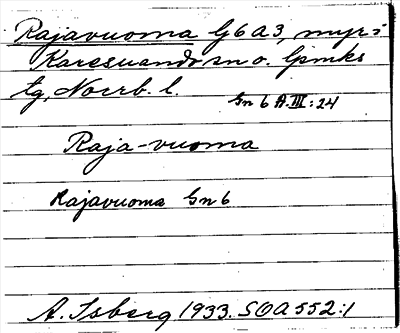 Rajavuoma G6A3, myr i
Karesuando sn o. lpmks
tg, Norrb. l.
Gn 6 A.III:24
Raja-vuoma
Rajavuoma Gn 6
A. Isberg 1933. SOA 552:1